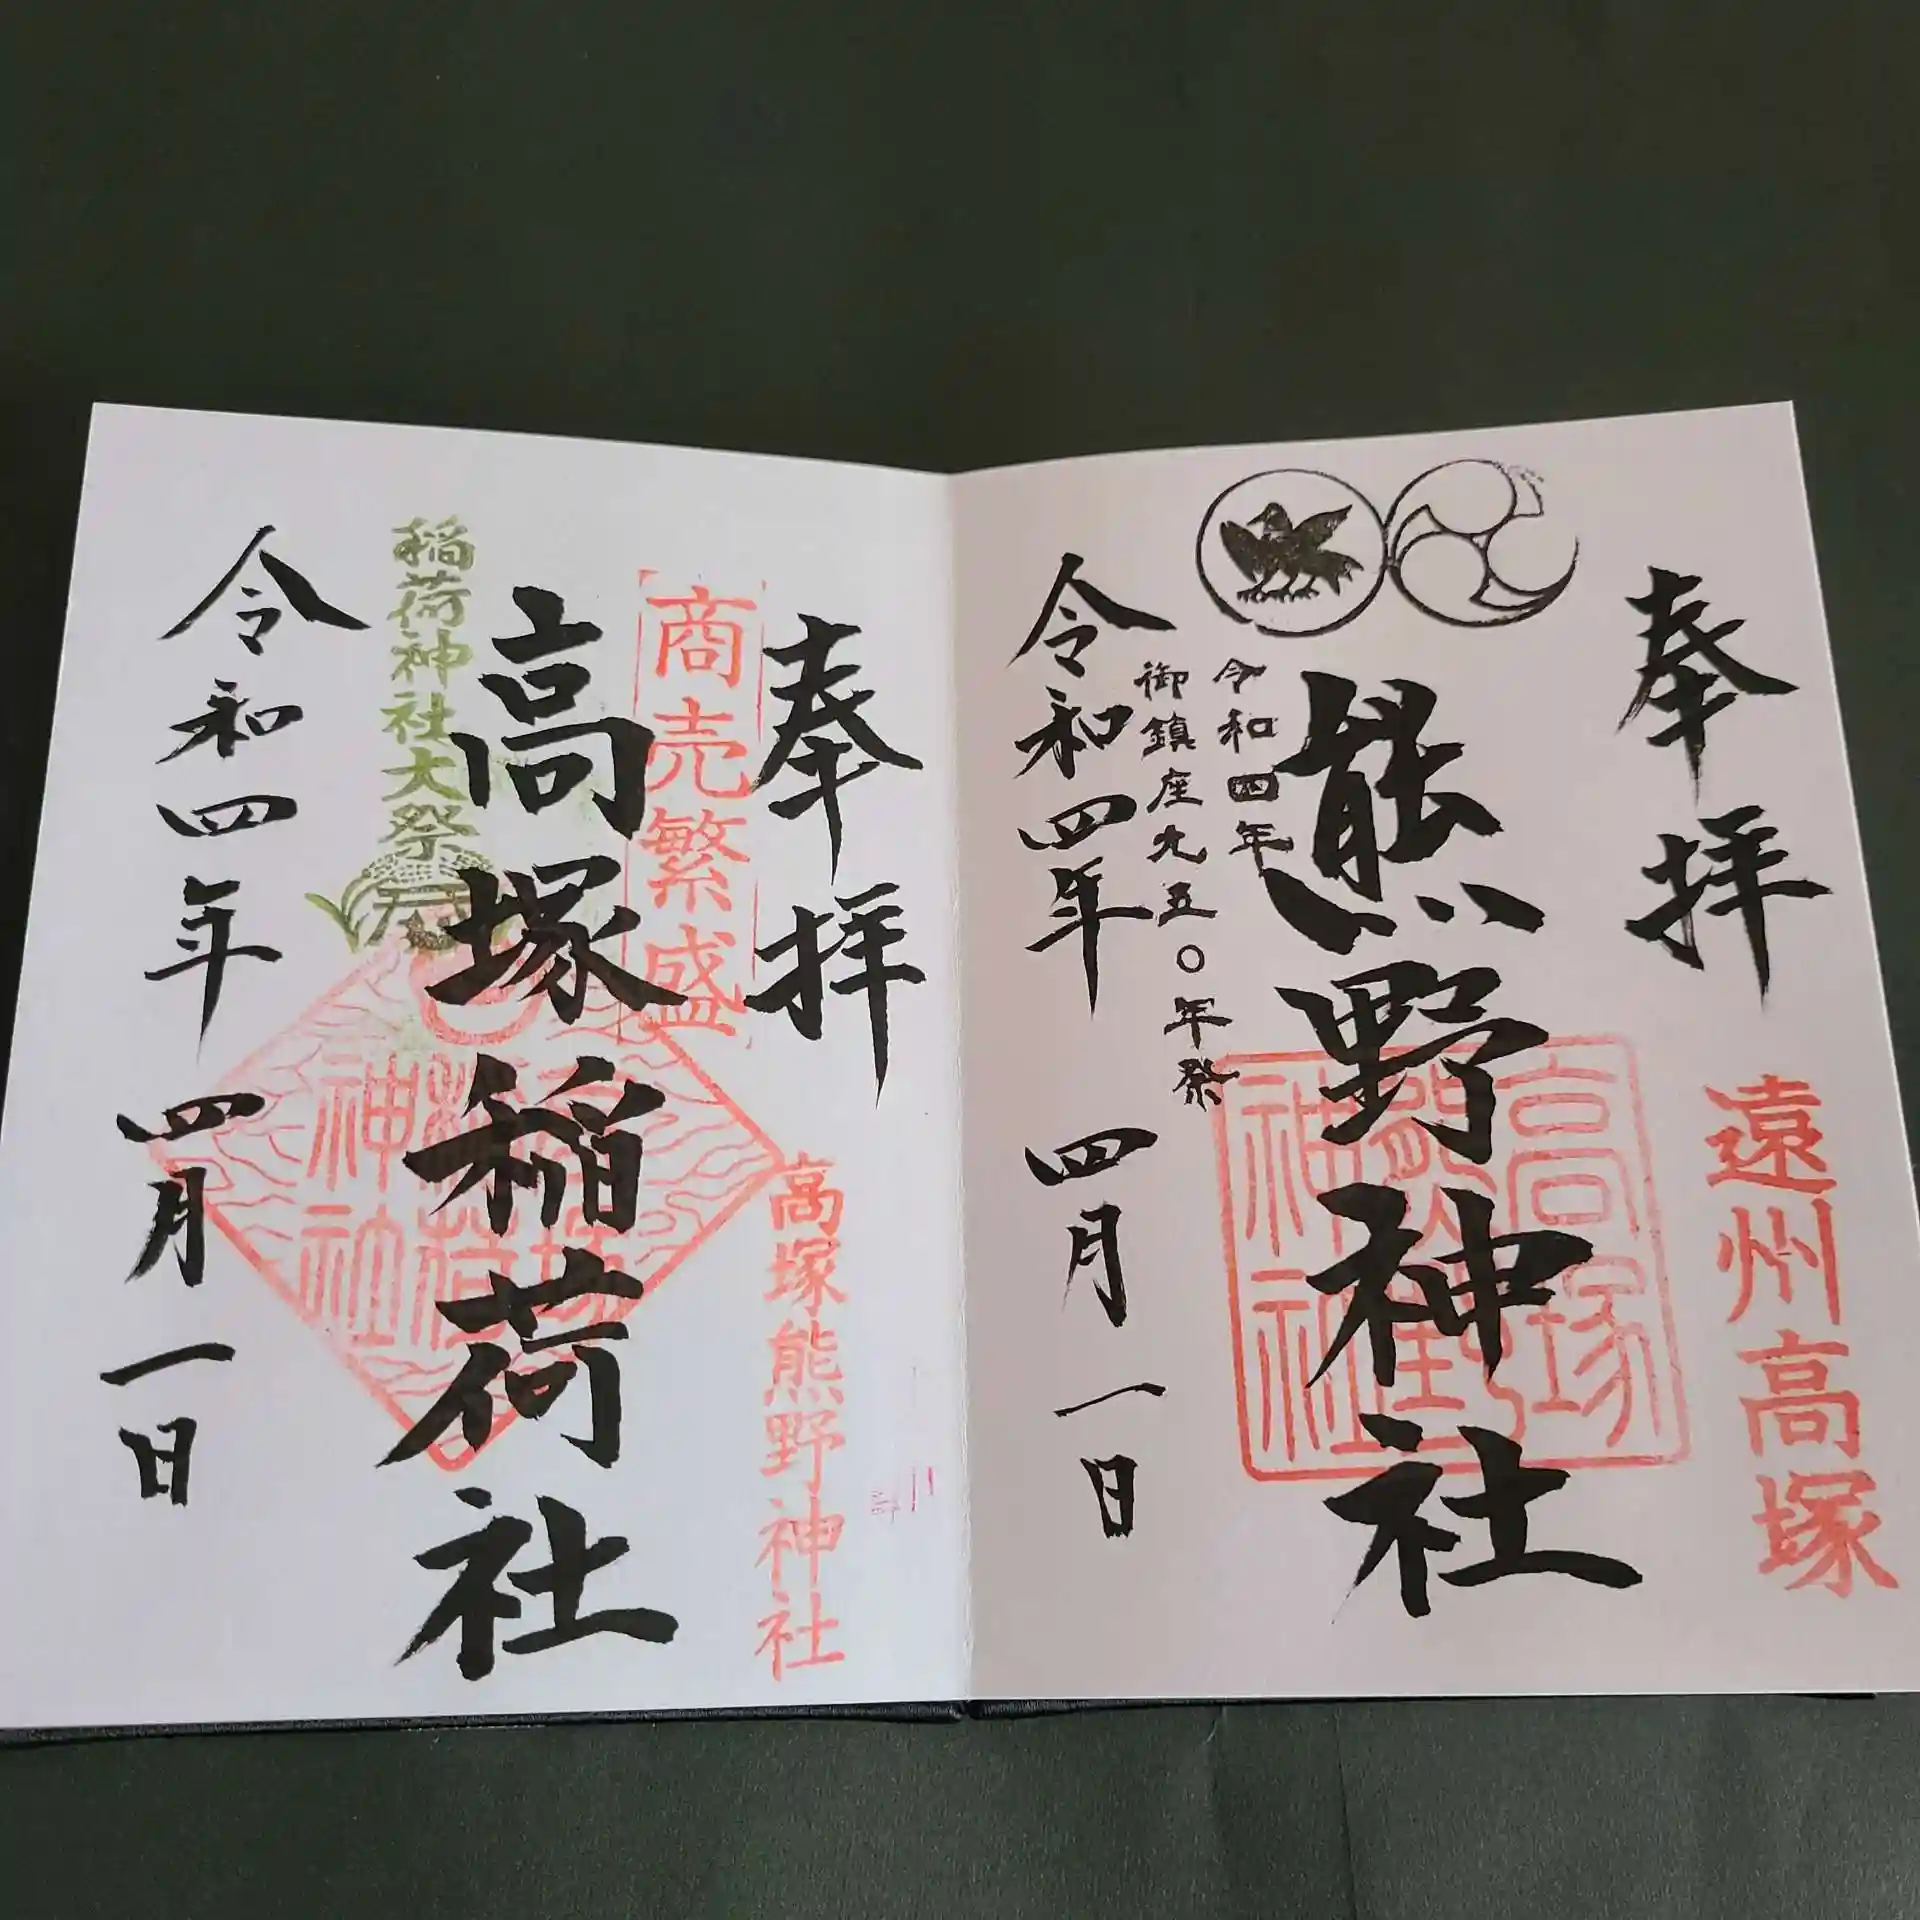 奉拝
遠州高塚
熊野神社
高塚
熊野
神社
令和四年
御鎮座九五〇年祭
令和四年四月一日
奉拝
商売繁盛
高塚熊野神社
高塚稲荷社
稲荷神社大祭
高塚
稲荷
神社
令和四年四月一日